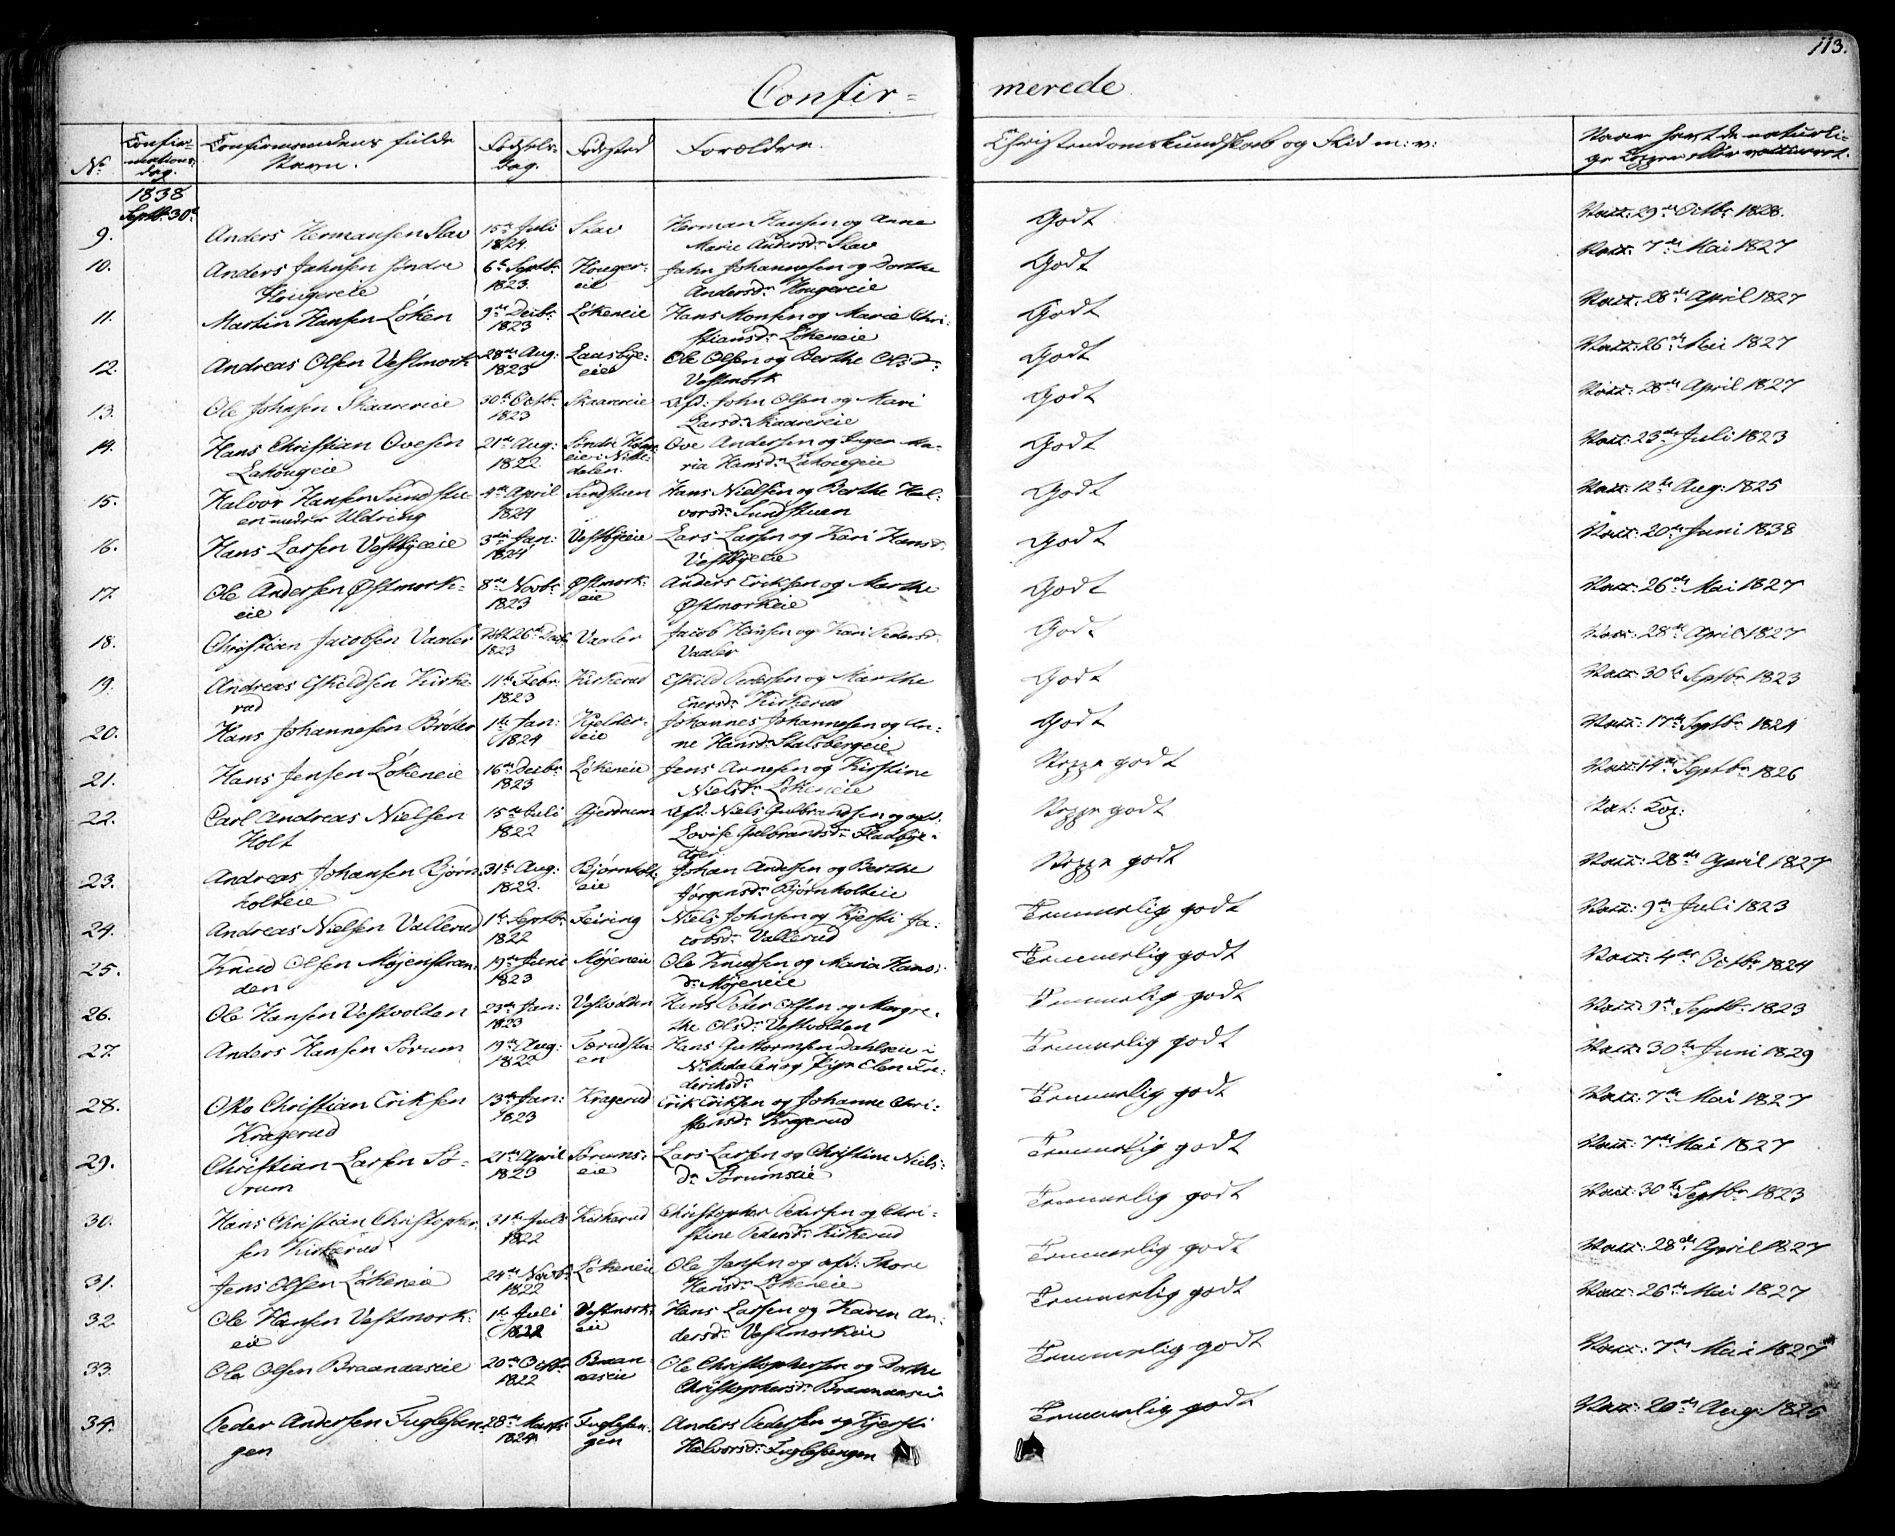 113.
Confir- merede
No. Confirmations dag. Confirmandens fulde Navn. Fødsels Dag. Fødested Forældre. Christendomskundskab og Flid m: v: Naar havt de naturlige Kopper eller vaccineret.
1838
Septbr 30te
9. Anders Hermansen Slav 15de Juli 1824 Slav Herman Hansen og Anne Marie Andersdr Slav Godt Vacc: 29de Octbr 1828.
10. Anders Jahnsen søndre Hougereie 6te Septbr 1823. Houger: eie Jahn Johannesen og Dorthe Andersdr Hougereie Godt Vacc: 7de Mai 1827
11. Martin Hansen Løken 9de Decbr 1823 Løkeneie Hans Monsen og Marie Christiansdr Løkeneie Godt Vacc: 28de April 1827
12. Andreas Olsen Vestmork 28de Aug: 1823 Laasbye: eie Ole Olsen og Berthe Olsdr Vestmork Godt Vacc: 26de Mai 1827
13. Ole Johnsen Skaarereie 30te Octbr 1823 Skaarereie Afd: John Olsen og Mari Larsdr Skaarereie Godt Vacc: 28de April 1827
14. Hans Christian Ovesen Lahougeie 21de Aug: 1822 Søndre eie i Nittedalen. Ove Andersen og Inger Maria Hansdr Lahougeie Godt Vacc: 23de Juli 1823
15. Halvor Hansen Sundstuen under Uldring 4de April 1824 Sundstuen Hans Nielsen og Berthe Halvorsdr Sundstuen Godt Vacc: 12te Aug: 1825
16. Hans Larsen Vestbyeeie 3die Jan: 1824 Vestbyeie Lars Larsen og Kari Hansdr Vestbyeeie Godt Vacc: 20de Juni 1838
17. Ole Andersen Østmorkeie 8de Novbr 1823 Østmork: eie Anders Eriksen og Marthe Østmorkeie Godt Vacc: 26de Mai 1827
18. Christian Jacobsen Vaaler 26de 1823 Vaaler Jacob Hansen og Kari Pedersdr Vaaler Godt Vacc: 28de April 1827
19. Andreas Eskildsen Kirkerud 11te Febr 1823 Kirkerud Eskild Pedersen og Marthe Enersdr Kirkerud Godt Vacc: 30te Septbr 1823
20. Hans Johannesen Brøter 1te Jan: 1824 Kjelder: eie Johannes Johannesen og Anne Hansdr Stalsbergeie Godt Vacc: 17de Septbr 1824
21. Hans Jensen Løkeneie 16de Decbr 1823 Løkeneie Jens Arnesen og Kirstine Nielsdr Løkeneie Neppe godt Vacc: 14de Septbr 1826
22. Carl Andreas Nielsen Holt 15de Juli 1822 Gjerdrum Afd: Niels Gulbrandsen og Lovise Gulbrandsdr Neppe godt Nat: Kop:
23. Andreas Johansen Bjørnholteie 31te Aug: 1822. Bjørnholt eie Johan Andersen og Berthe Jørgensdr Bjørnholteie Neppe godt Vacc: 28de April 1827
24. Andreas Nielsen Vallerud 1te Septbr 1822 Leiring Niels Johnsen og Kjersti Jacobsdr Vallerud Temmelig godt Vacc: 9de Juli 1823
25. Knud Olsen Møjenstranden 19de Juni 1823 Møjeneie Ole Knudsen og Maria Hansdr Møjeneie Temmelig godt Vacc: 4de Octbr 1824
26. Ole Hansen Vestvolden 23de Jan: 1823 Vestvolden Hans Peder Olsen og Margrethe Olsdr Vestvolden Temmelig godt Vacc: 9de Septbr 1823
27. Anders Hansen Sørum 19de Aug: 1822 Tærudstuen Hans Guttormsen Dahlseie i Nittedalen og Pige Elen Frederiksdr Temmelig godt Vacc: 30te Juni 1829
28. Otto Christian Eriksen Kragerud 13de Jan: 1823 Kragerud Erik Eriksen og Johanne Christensdr Kragerud Temmelig godt Vacc: 7de Mai 1827
29. Christian Larsen Sørum 21de April 1823 Sørums: eie Lars Larsen og Christine Nielsdr Sørumseie Temmelig godt Vacc: 7de Mai 1827
30. Hans Christian Christophersen Kirkerud 31te Juli 1822 Kirkerud Christopher Pedersen og Christine Pedersdr Kirkerud Temmelig godt Vacc: 30te Septbr 1823
31. Jens Olsen Løkeneie 24de Novbr 1822 Løkeneie Ole Jansen og afd: Thore Hansdr Løkeneie Temmelig godt Vacc: 28de April 1827
32. Ole Hansen Vestmorkeie 1te Juli 1822 Vestmork: eie Hans Larsen og Karen Andersdr Vestmorkeie Temmelig godt Vacc: 26de Mai 1827
33. Ole Olsen Braanaaseie 20de Octbr 1822 Braanaaseie Ole Christophersen og Dorthe Christophersdr Braanaaseie Temmelig godt Vacc: 7de Mai 1827
34. Peder Andersen Fuglesengen 28de Marts 1824 Fuglesengen Anders Pedersen og Kjersti Halvorsdr Fuglesengen Temmelig godt Vacc: 20de Aug: 1825